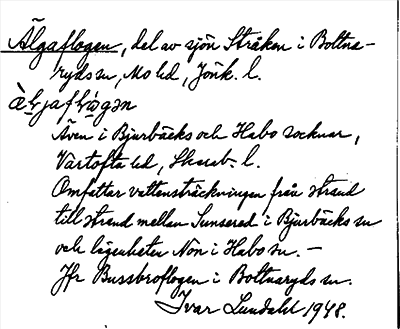 Älgaflogen, del av sjön Stråken i Bottna-
ryds sn, Mo hd, Jönk. l.
Även i Bjurbäcks och Habo socknar,
Vartofta hd, Skarab. l.
Omfattar vattensträckningen från strand
till strand mellan Sunserad i Bjurbäcks sn
och lägenheten Nön i Habo sn. —
Jfr Bussbroflogen i Bottnaryds sn.
Ivar Lundahl 1948.